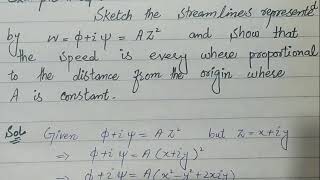 Sketch the streamlines represented
by w = φ+iψ = AZ² and show that
the speed is every where proportional
to the distance from the origin where
A is constant.
Sol Given φ+iψ = AZ² but Z = x+iy
⇒ φ+iψ = A(x+iy)²
⇒ φ+iψ = A(x²-y²+2xiy)